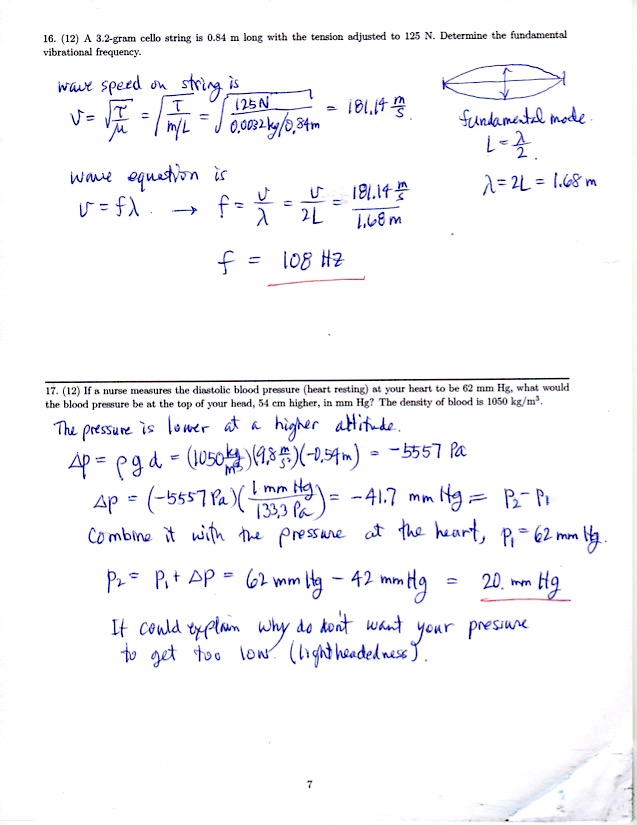 16. (12) A 3.2-gram cello string is 0.84 m long with the tension adjusted to 125 N. Determine the fundamental
vibrational frequency.
wave speed on string is
v = √(T/μ) = √(T/(m/L)) = √(125 N/(0.0032 kg/0.84m)) = 181.14 m/s
fundamental mode.
L = λ/2.
λ = 2L = 1.68 m
wave equation is
v = fλ. → f = v/λ = v/2L = 181.14 m/s / 1.68 m
f = 108 Hz
17. (12) If a nurse measures the diastolic blood pressure (heart resting) at your heart to be 62 mm Hg, what would
the blood pressure be at the top of your head, 54 cm higher, in mm Hg? The density of blood is 1050 kg/m³.
The pressure is lower at a higher altitude.
Δp = ρ g d = (1050 kg/m³)(9.8 m/s²)(-0.54m) = -5557 Pa
Δp = (-5557 Pa)(1 mm Hg/133.3 Pa) = -41.7 mm Hg = P₂ - P₁
Combine it with the pressure at the heart, P₁ = 62 mm Hg.
P₂ = P₁ + Δp = 62 mm Hg - 42 mm Hg = 20. mm Hg
It could explain why do don't want your pressure
to get too low. (lightheadedness).
7